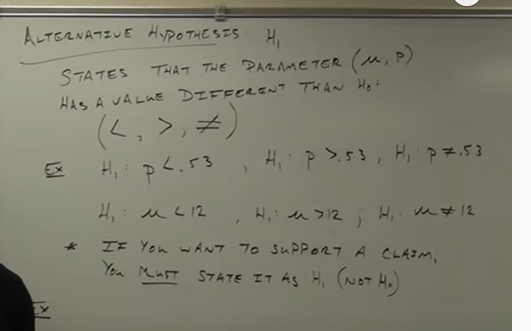 ALTERNATIVE HYPOTHESIS: H₁
STATES THAT THE PARAMETER (μ, P)
HAS A VALUE DIFFERENT THAN H₀:
(<, >, ≠)
EX H₁: p<.53 , H₁: p>.53, H₁: p≠.53
H₁: μ<12 , H₁: μ>12 ; H₁: μ≠12
* IF YOU WANT TO SUPPORT A CLAIM,
YOU MUST STATE IT AS H₁ (NOT H₀)
EX